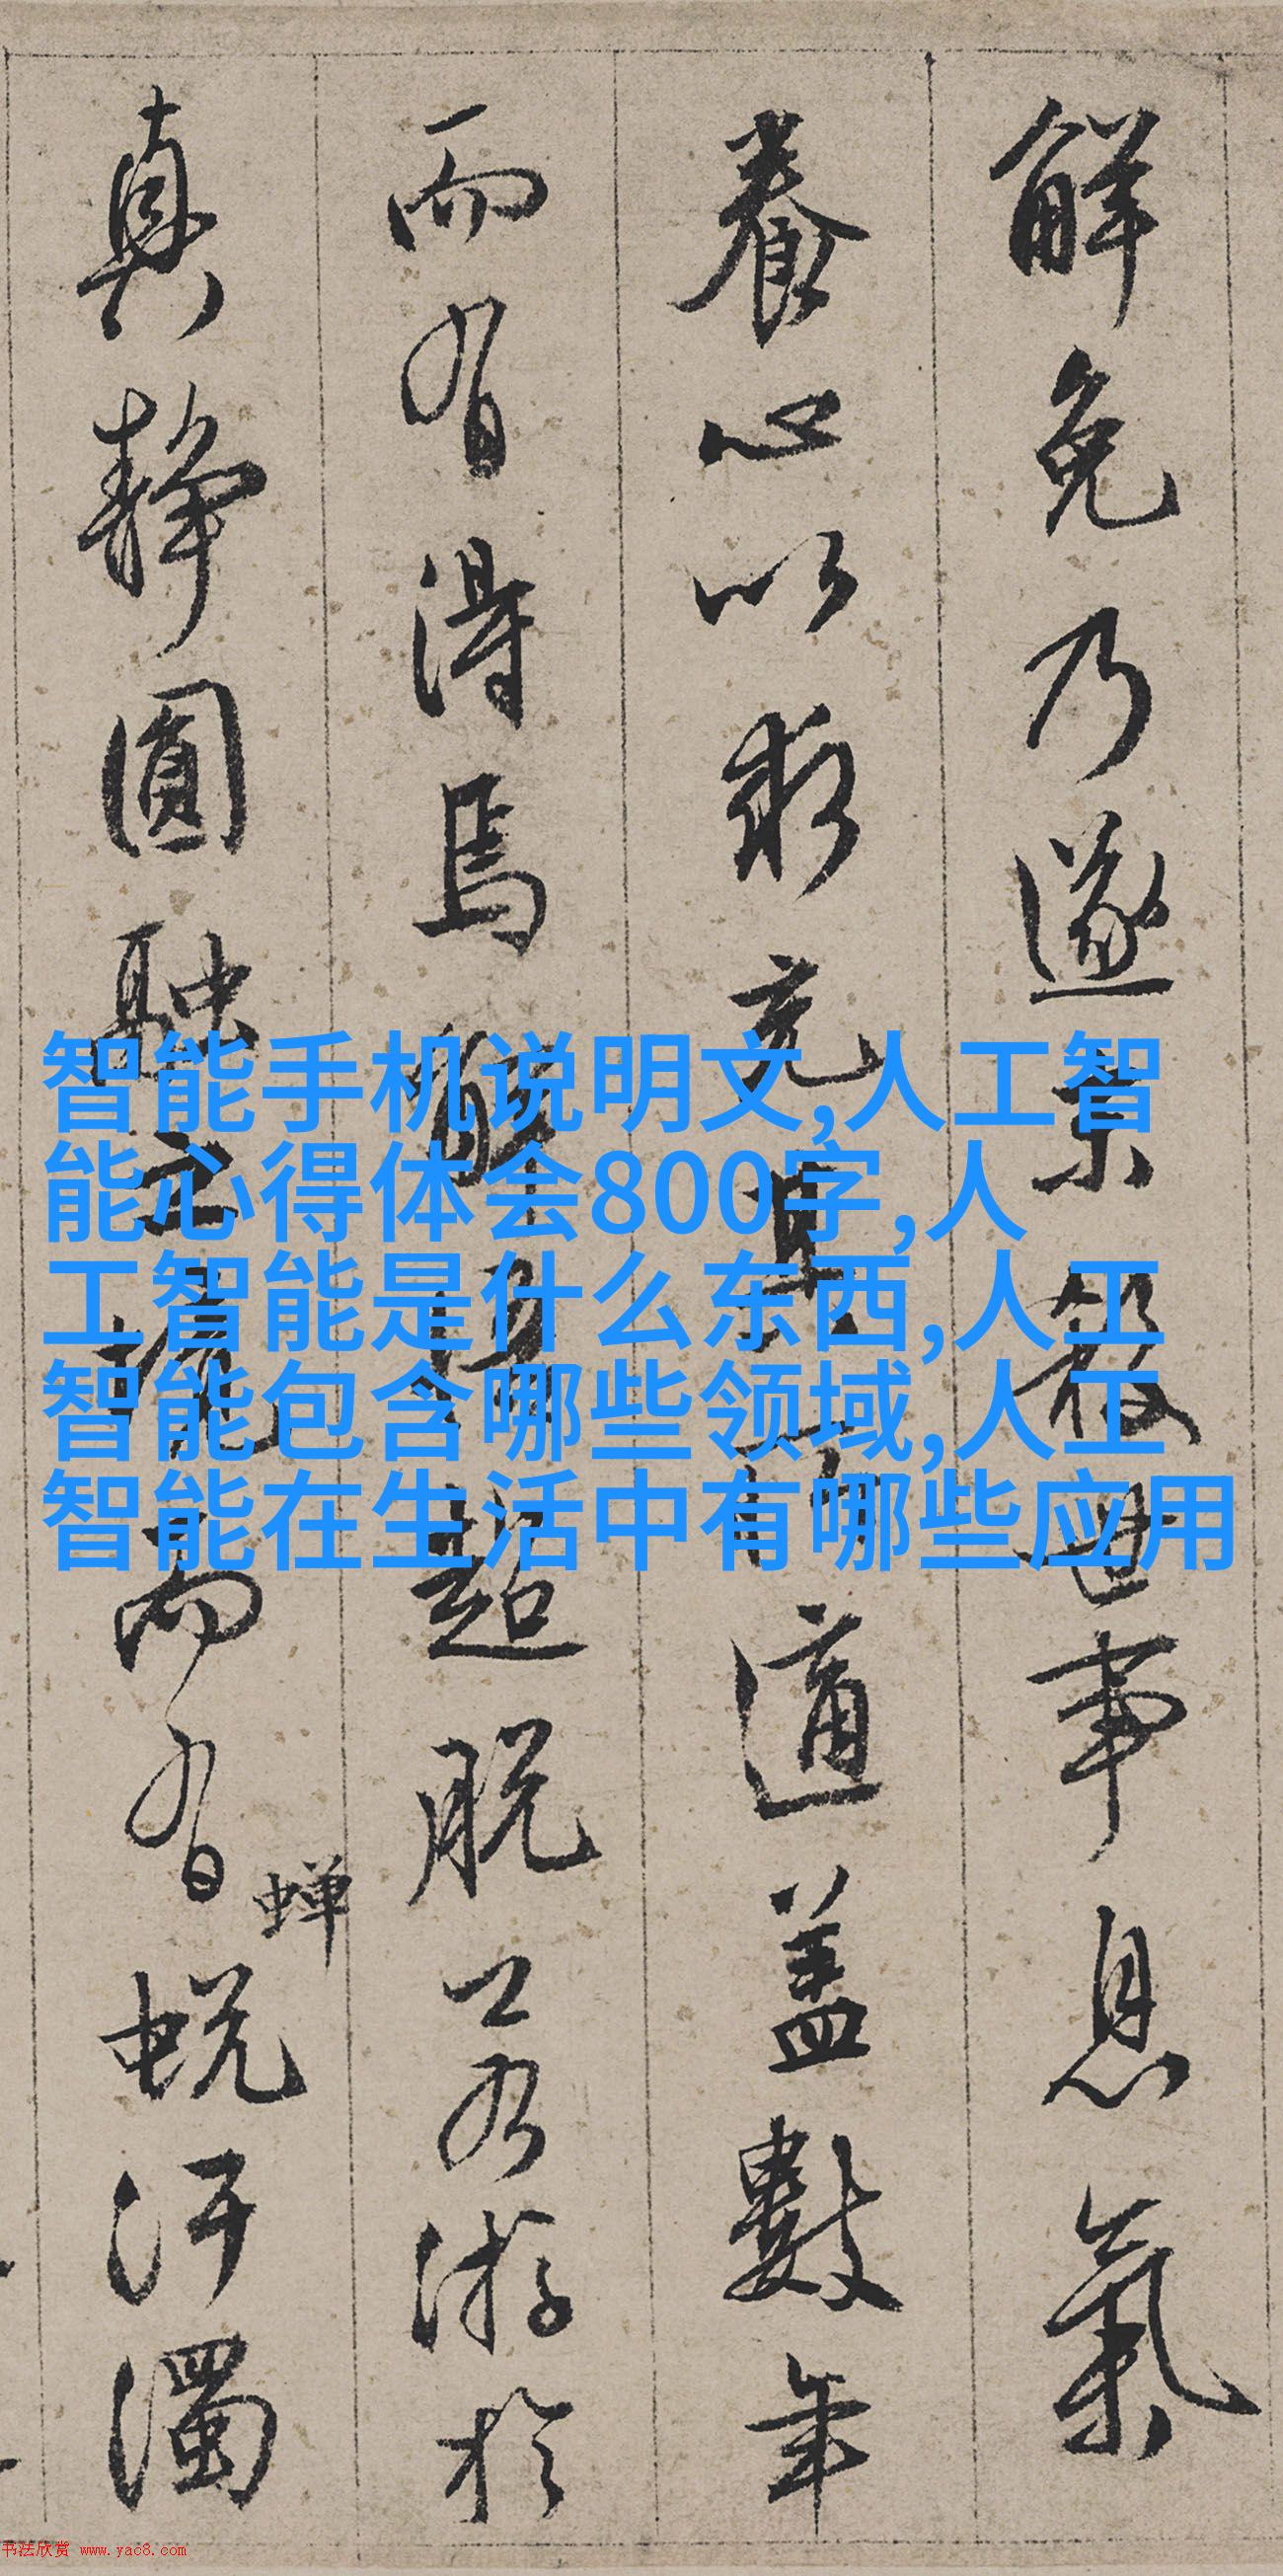 解免乃遂世事息氣
養心以求充其所適蓋數年
而有得焉解悟超脫若游於
真靜圓融之境而有蟬蛻汙濁
智能手机说明文,人工智
能心得体会800字,人
工智能是什么东西,人工
智能包含哪些领域,人工
智能在生活中有哪些应用
书法欣赏 www.yac8.com